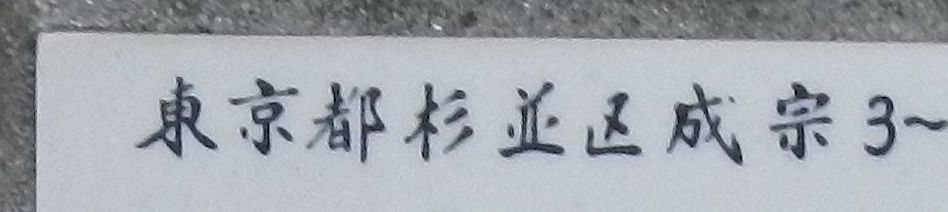 東京都杉並区成宗3~